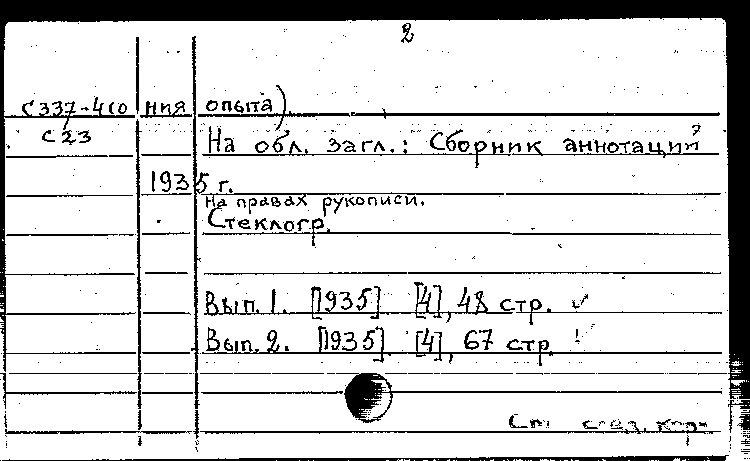 2
С337-4(0 ния опыта).
С23
На обл. загл.: Сборник аннотаций
1935 г.
На правах рукописи.
Стеклогр.
Вып. 1. [1935] [4], 48 стр. ✓
Вып. 2. [1935]. [4], 67 стр. !
См след. карт